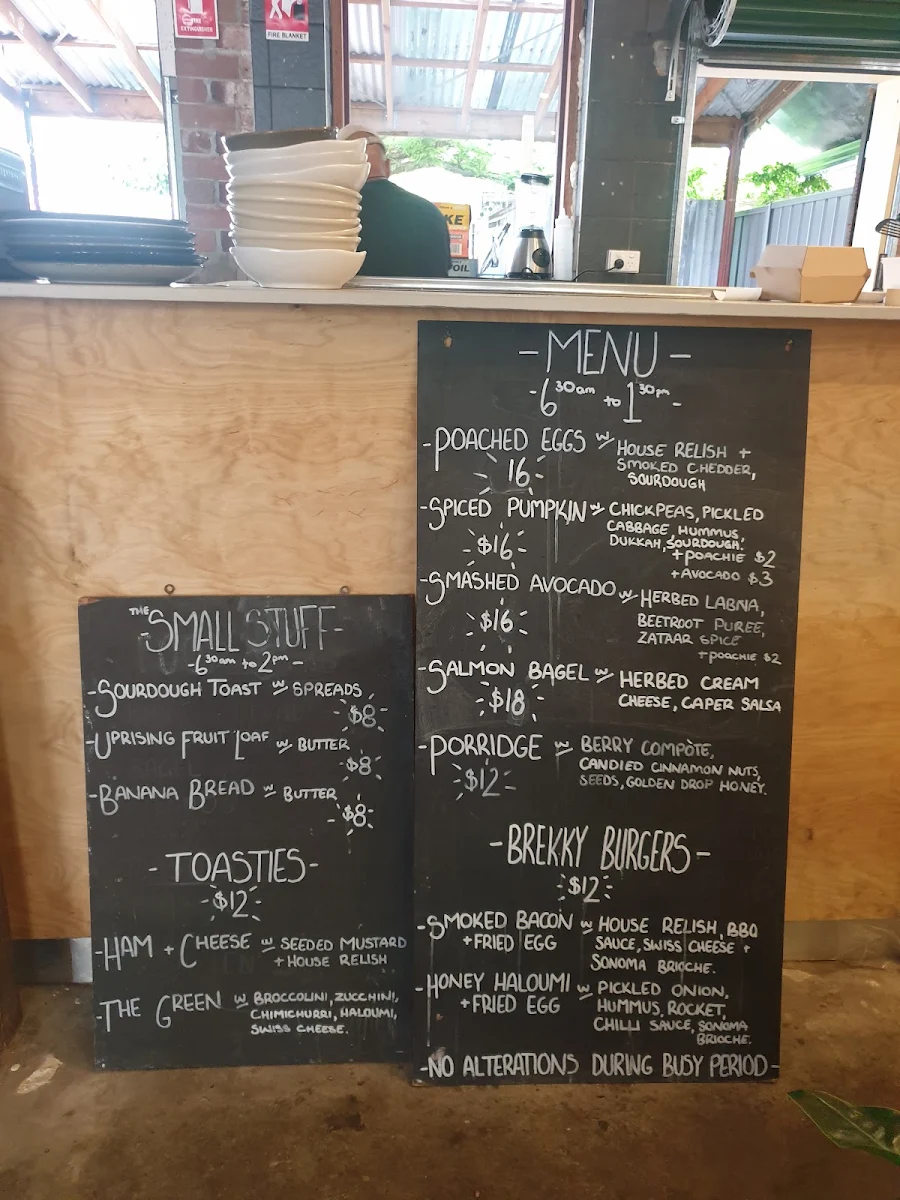 EXTINGUISHER
FIRE BLANKET
KE
OIL
-MENU-
-6 30am to 1 30pm-
-POACHED EGGS w/ HOUSE RELISH +
SMOKED CHEDDER,
SOURDOUGH
16
-SPICED PUMPKIN w/ CHICKPEAS, PICKLED
CABBAGE, HUMMUS,
DUKKAH, SOURDOUGH.
$16
+POACHIE $2
+AVOCADO $3
-SMASHED AVOCADO w/ HERBED LABNA,
BEETROOT PUREE,
ZATAAR SPICE
$16
+POACHIE $2
-SALMON BAGEL w/ HERBED CREAM
CHEESE, CAPER SALSA
$18
-PORRIDGE w/ BERRY COMPOTE,
CANDIED CINNAMON NUTS,
SEEDS, GOLDEN DROP HONEY.
$12
-BREKKY BURGERS-
$12
-SMOKED BACON w/ HOUSE RELISH, BBQ
+FRIED EGG SAUCE, SWISS CHEESE +
SONOMA BRIOCHE.
-HONEY HALOUMI w/ PICKLED ONION,
+FRIED EGG HUMMUS, ROCKET,
CHILLI SAUCE, SONOMA
BRIOCHE.
-NO ALTERATIONS DURING BUSY PERIOD-
THE SMALL STUFF-
-6 30am to 2pm-
-SOURDOUGH TOAST w/ SPREADS
$8
-UPRISING FRUIT LOAF w/ BUTTER
$8
-BANANA BREAD w/ BUTTER
$8
-TOASTIES-
$12
-HAM + CHEESE w/ SEEDED MUSTARD
+HOUSE RELISH
-THE GREEN w/ BROCCOLINI, ZUCCHINI,
CHIMICHURRI, HALOUMI,
SWISS CHEESE.